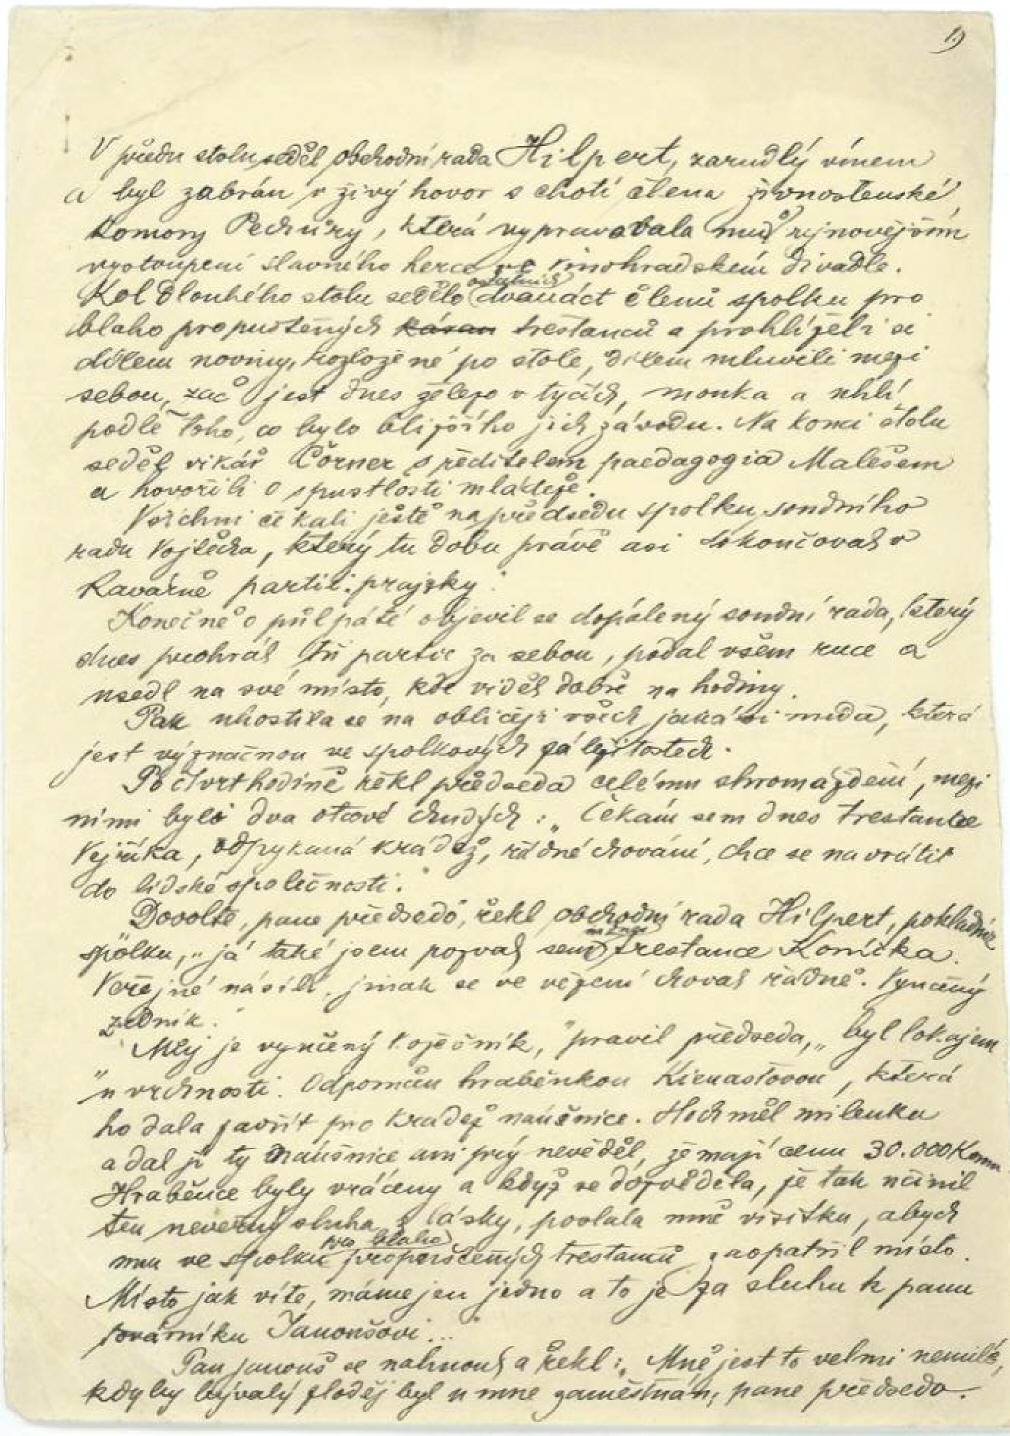 1)
V předu stolu, seděl obchodní rada Hilpert, zarudlý vínem
a byl zabrán v živý hovor s chotí člena živnostenské
komory Pechůry, která vypravovala mu o nejnovějším
vystoupení slavného herce ve vinohradském divadle.
ostatních
Kol dlouhého stolu sedělo dvanáct členů spolku pro
blaho propuštěných káran trestanců a prohlíželi si
dílem noviny, rozložené po stole, dílem mluvili mezi
sebou, zač jest dnes železo v tyčích, mouka a uhlí,
podle toho, co bylo bližšího jich závodu. Na konci stolu
seděl vikář Čörner s ředitelem paedagogia Malešem
a hovořili o spustlosti mládeže.
Všichni čekali ještě na předsedu spolku, soudního
radu Vojtěcha, který tu dobu právě asi dokončoval v
kavárně partii prajzky.
Konečně o půl páté objevil se dopálený soudní rada, který
dnes prohrál tři partie za sebou, podal všem ruce a
usedl na své místo, kde viděl dobře na hodiny.
Pak uhostila se na obličeji všech jakási nuda, která
jest význačnou ve spolkových záležitostech.
Po čtvrt hodině řekl předseda celému shromáždění, mezi
nimi byli dva otcové chudých: „Čekám sem dnes trestance
Vejříka, odpykaná krádež, řádné chování, chce se navrátit
do lidské společnosti."
Dovolte, pane předsedo, řekl obchodní rada Hilpert, pokladník
spolku, „já také jsem pozval sem trestance Konička.
Veřejné násilí, jinak se ve vězení choval řádně. Vyučený
zedník."
„Můj je vyučený kožešník," pravil předseda, „byl lokajem
u vrchnosti. Odporučen hraběnkou Kienastovou, která
ho dala zavřít pro krádež náušnice. Hoch měl milenku
a dal jí ty náušnice ani prý nevěděl, že mají cenu 30.000 Korun.
Hraběnce byly vráceny a když se dozvěděla, že tak učinil
ten nevěrný sluha z lásky, poslala mně visitku, abych
pro blaho
mu ve spolku propuštěných trestanců zaopatřil místo.
Místo jak víte, máme jen jedno a to je za sluhu k panu
továrníku Janoušovi..."
Pan Janouš se nahnul a řekl: „Mně jest to velmi nemilé,
kdyby bývalý zloděj byl u mne zaměstnán, pane předsedo.